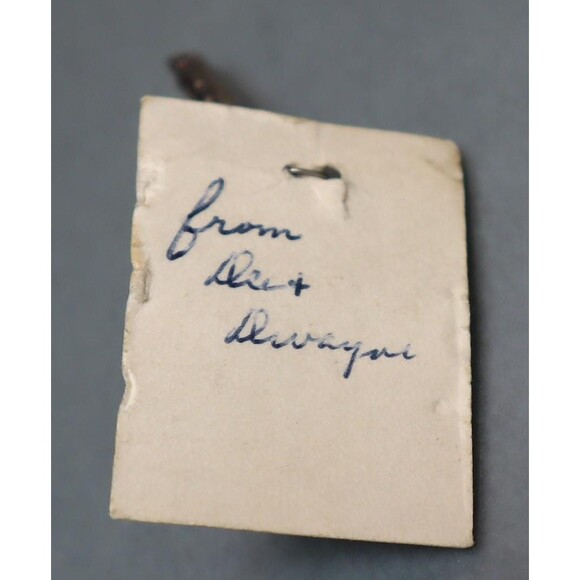 from
Dee +
Dwayne